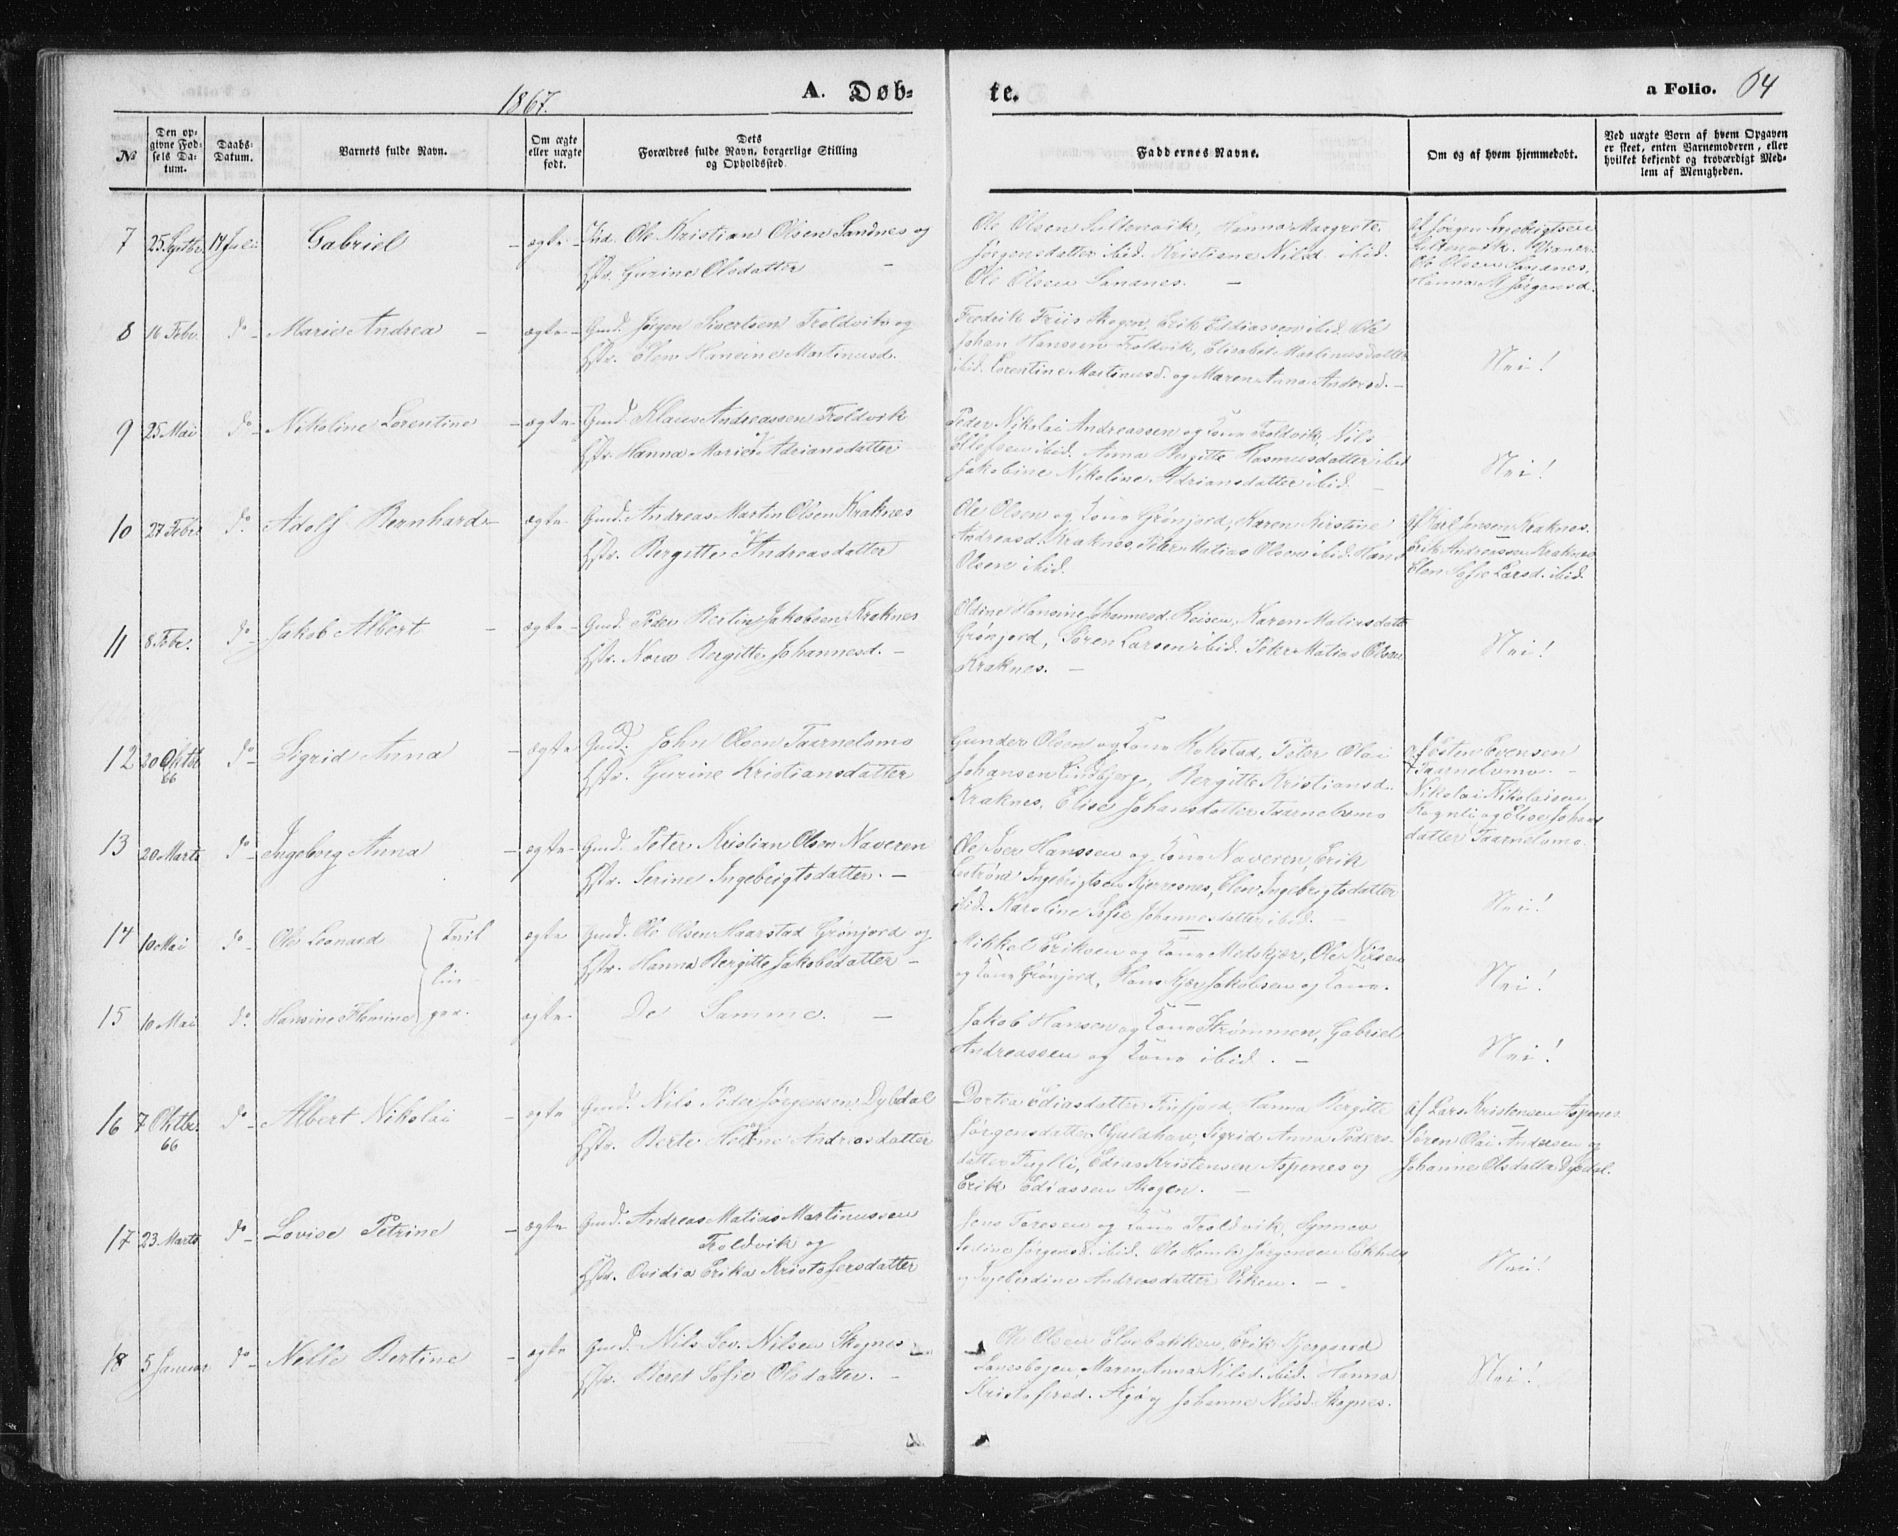 1867.
A. Døb-
te.
a Folio. 64
№
Den op-
givne Fød-
sels Da-
tum.
Daabs-
Datum.
Barnets fulde Navn.
Om ægte
eller uægte
født.
Dets
Forældres fulde Navn, borgerlige Stilling
og Opholdssted.
Faddernes Navne.
Om og af hvem hjemmedøbt.
Ved uægte Børn af hvem Opgaven
er skeet, enten Barnemoderen, eller
hvilket bekjendt og troværdigt Med-
lem af Menigheden.
7 25 Septbr 14 Juli Gabriel - ægte - Ole Kristian Olsen Sandnes og
Hstr. Gurine Olsdatter -
Ole Olsen Hanna Margrete
Jørgensdatter ibid. Kristiane Nilsd. ibid.
Ole Olsen Sandnes. -
af Jørgen Ingebrigtsen
Ole Olsen Sandnes,
Hanna M Jørgensd.
8 16 Febr. do - Marie Andrea - ægte - Gmd. Jørgen Sivertsen Troldvik og
Hstr. Elen Hansine Martinusd.
Fredrik Friis Skogen, Erik Ediassen ibid. Ole
Johan Hanssen Troldvik, Elisabet Martinusdatter
ibid. Lorentine Martinusd. og Maren Anna Andersd. -
Nei!
9 25 Mai do - Nikoline Lorentine - ægte - Gmd. Klaus Andreassen Troldvik
og
Hstr. Hanna Marie Adriansdatter
Peder Nikolai Andreassen og Kone Troldvik, Nils
Ellefsen ibid. Anna Bergitte Rasmusdatter ibid
Jakobine Nikoline Adriansdatter ibid. -
Nei!
10 27 Febr do. Adolf Bernhard - ægte - Gmd. Andreas Martin Olsen Kraknes
og
Hstr. Bergitte Andreasdatter
Ole Olsen og Kone Grønjord, Karen Kirstine
Andreasd. Kraknes, Peter Matias Olsen ibid. Hans
Olsen ibid.
af Karl Jensen Kraknes.
Erik Andreassen Kraknes
Elen Sofie Larsd. ibid.
11 8 Febr. do - Jakob Albert - ægte - Gmd. Peder Bertin Jakobsen Kraknes
Hstr. Nora Bergitte Johannesd. -
Oldine Hansine Johannesd. Reisen, Karen Matiasdatt
Grønjord, Søren Larsen ibid. Peter Matias Olsen
Kraknes. -
Nei!
12 20 Oktbr do - Sigrid Anna - ægte Gmd. John Olsen Taarnelvmo
66
Hstr. Gurine Kristiansdatter
Gunder Olsen og Kone Kokstad, Peter Olai
Johansen Lindbjerg, Bergitte Kristiansd.
Kraknes, Elise Johansdatter Taarnelvmo
af Esten Evensen
Taarnelvmo. -
Nikolai Nikolaisen
Rognli og Elise Johans
datter Taarnelvmo.
13 20 Marts do - Ingeborg Anna - ægte - Gmd. Peter Kristian Olsen Naveren
Hstr. Serine Ingebrigtsdatter. -
Ole Iver Hanssen og Kone Naveren, Erik
Ingebrigtsen Kjerresnes, Elen Ingebrigtsdatter
ibid. Karoline Sofie Johannesdatter ibid. -
Nei!
14 10 Mai do - Ole Leonard Tvil ægte Gmd. Ole Olsen Haarstad Grønjord og
lin - Hstr. Hanna Bergitte Jakobsdatter -
Mikkel Eriksen og Kone Medskjær, Ole Nilsen
og Kone Grønjord, Hans Kjær Jakobsen og Kone.
Nei!
15 10 Mai do. Hansine Flamine ger. ægte - De Samme. -
Jakob Hansen og Kone Strømmen, Gabriel
Andreassen og Kone ibid. -
Nei!
16 7 Oktbr. do - Albert Nikolai - egte Gmd. Nils Peder Jørgensen Dyldal
66
og
Hstr. Berte Helene Andreasdatter
Dortea Ediasdatter Finfjord, Hanna Bergitte
Jørgensdatter Guldhav, Sigrid Anna Peders-
datter Fuglli, Edias Kristensen Aspenes og
Erik Ediassen Skogen. -
af Lars Kristensen Aspenes
Søren Olai Andersen og
Johanne Olsdatter Dyldal.
17 23 Marts do - Lovise Petrine - ægte Gmd. Andreas Matias Martinussen
Troldvik og
Hstr. Ovidia Erika Kristofersdatter
Jens Toresen og Kone Troldvik, Synnøv
Jørgensd. ibid. Ole Jørgensen
og Ingeberdine Andreasdatter Viken. -
Nei!
18 5 Januar do - Nelle Bertine - ægte Gmd. Nils Sev. Nilsen Skognes
Hstr. Beret Sofie Olsdatter. -
Ole Olsen Elvebakken, Erik Kjergaard
Lanesbogen, Maren Anna Nilsd. ibid. Hanna
Kristofersd. og Johanne Nilsd. Skognes.
Nei!